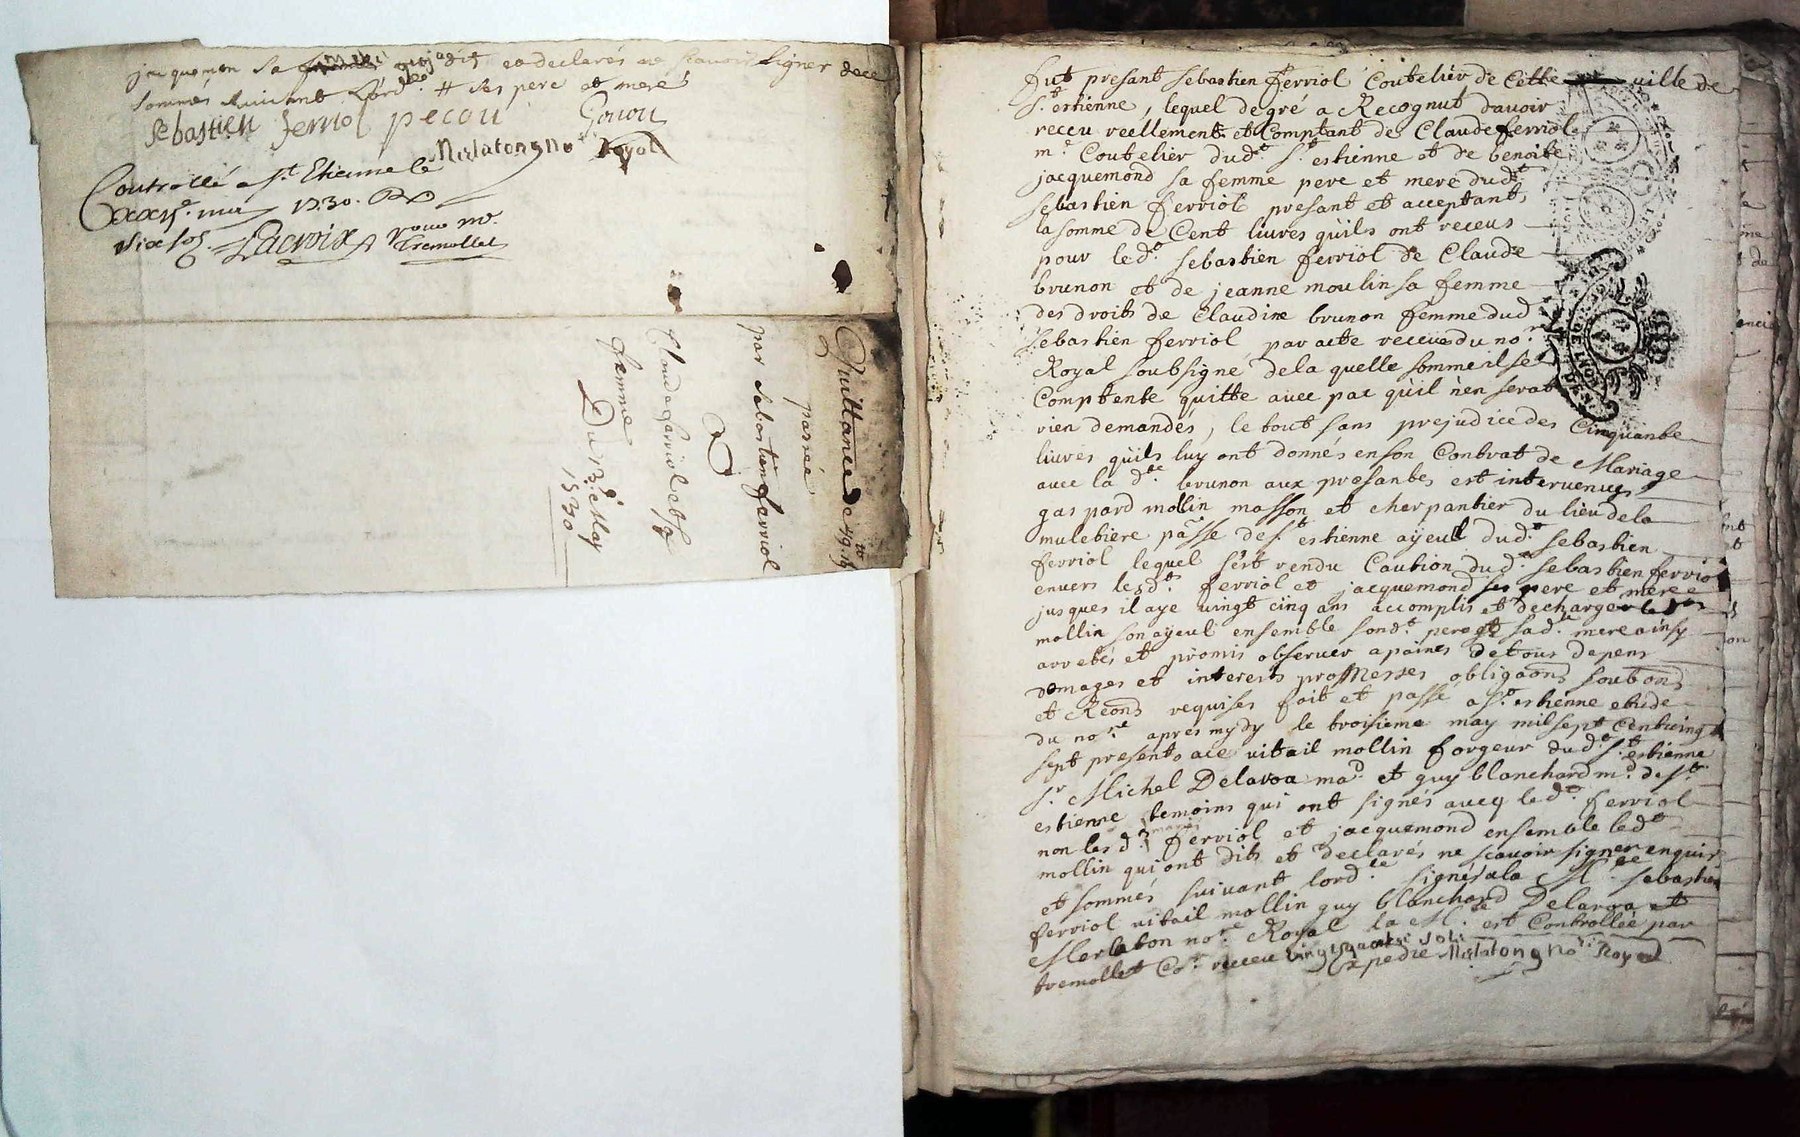 jacquemon sa qui a dit et declarés ne scavoir signer dece
sommés suivant l'ord.ce # ses pere et mere
sebastien ferriol pecou Gonon
Merlatong no.re Royal
Controllé a S.t Etienne le
may 1730. R
six sols Lacroix pour mr
Tremollet
Quittance de 49.
passée
par Sebastien ferriol
a
Claude ferriol et sa
femme
Du 12.e May
1730
fut presant sebastien ferriol Coutelier de Cette ville de
s.t estienne, lequel de gré a Recognut d'avoir
receu reellement et Comptant de Claude ferriol
m.e Coutelier dud.t s.t estienne et de benoite
jacquemond sa femme pere et mere dud.t
sebastien ferriol presant et acceptant,
la somme de Cent livres quils ont receus
pour led.t sebastien ferriol de Claude
brunon et de jeanne moulin sa femme
des droits de Claudine brunon femme dud
sebastien ferriol par acte receu du no.re
Royal soubsigné de la quelle somme il se
Comptente quitte avec pac qu'il n'en serat
rien demandés, le tout sans prejudice des Cinquante
livres quils luy ont donnés en son Contrat de Mariage
avec la d.te brunon aux presantes est intervenus
gaspard mollin masson et cherpantier du lieu de la
muletiere pâsse de s.t estienne ayeul dud.t sebastien
ferriol lequel s'est rendu Caution dud.t sebastien ferriol
envers lesd.ts ferriol et jacquemond ses pere et mere
jusques il aye vingt cinq ans accomplis et decharger le
mollin son ayeul ensemble sond.t pere et sad.te mere ainsy
arretés et promis observer a paines de tous depens
domages et interests promesses obligaons soubons
et Reons requises fait et passé a s.t estienne etude
du no.re apres mydy le troisieme may mil sept Cent vingt
sept presents a ce vitail mollin forgeur dud.t s.t estienne
s.r Michel Delaroa ma.d et guy blanchard m.d de s.t
estienne temoins qui ont signés avecq led.t ferriol
non les d.ts mariés ferriol et jacquemond ensemble led.t
mollin qui ont dits et declarés ne scavoir signer enquis
et sommés suivant lord.ce signés a la M.te sebastien
ferriol vitail mollin guy blanchard Delaroa et
Merlaton no.re Royal la M.te est Controllée par
tremollet Co.r receu vingt quatre sols
Expedié Merlatong no.re Royal